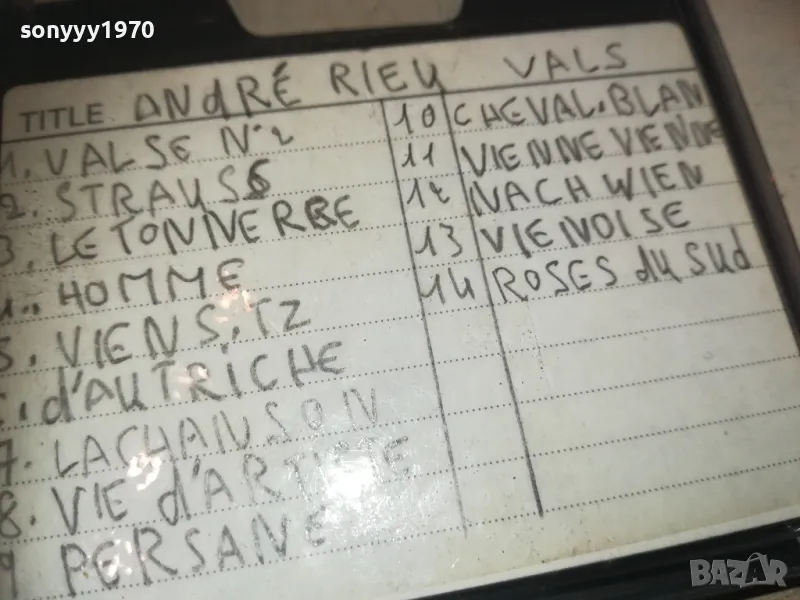 sonyyy1970
TITLE ANDRÉ RIEU VALS
1. VALSE N:2
2. STRAUSS
3. LE TONNERRE
4.. HOMME
5. VIENS, TZ
6. d'AUTRICHE
7. LACHANSON
8. VIE d'ARTISTE
9 PERSANE
10 CHEVAL.BLAN
11 VIENNE VIENNE
12 NACH WIEN
13 VIENOISE
14 ROSES du SUd
BAZAR